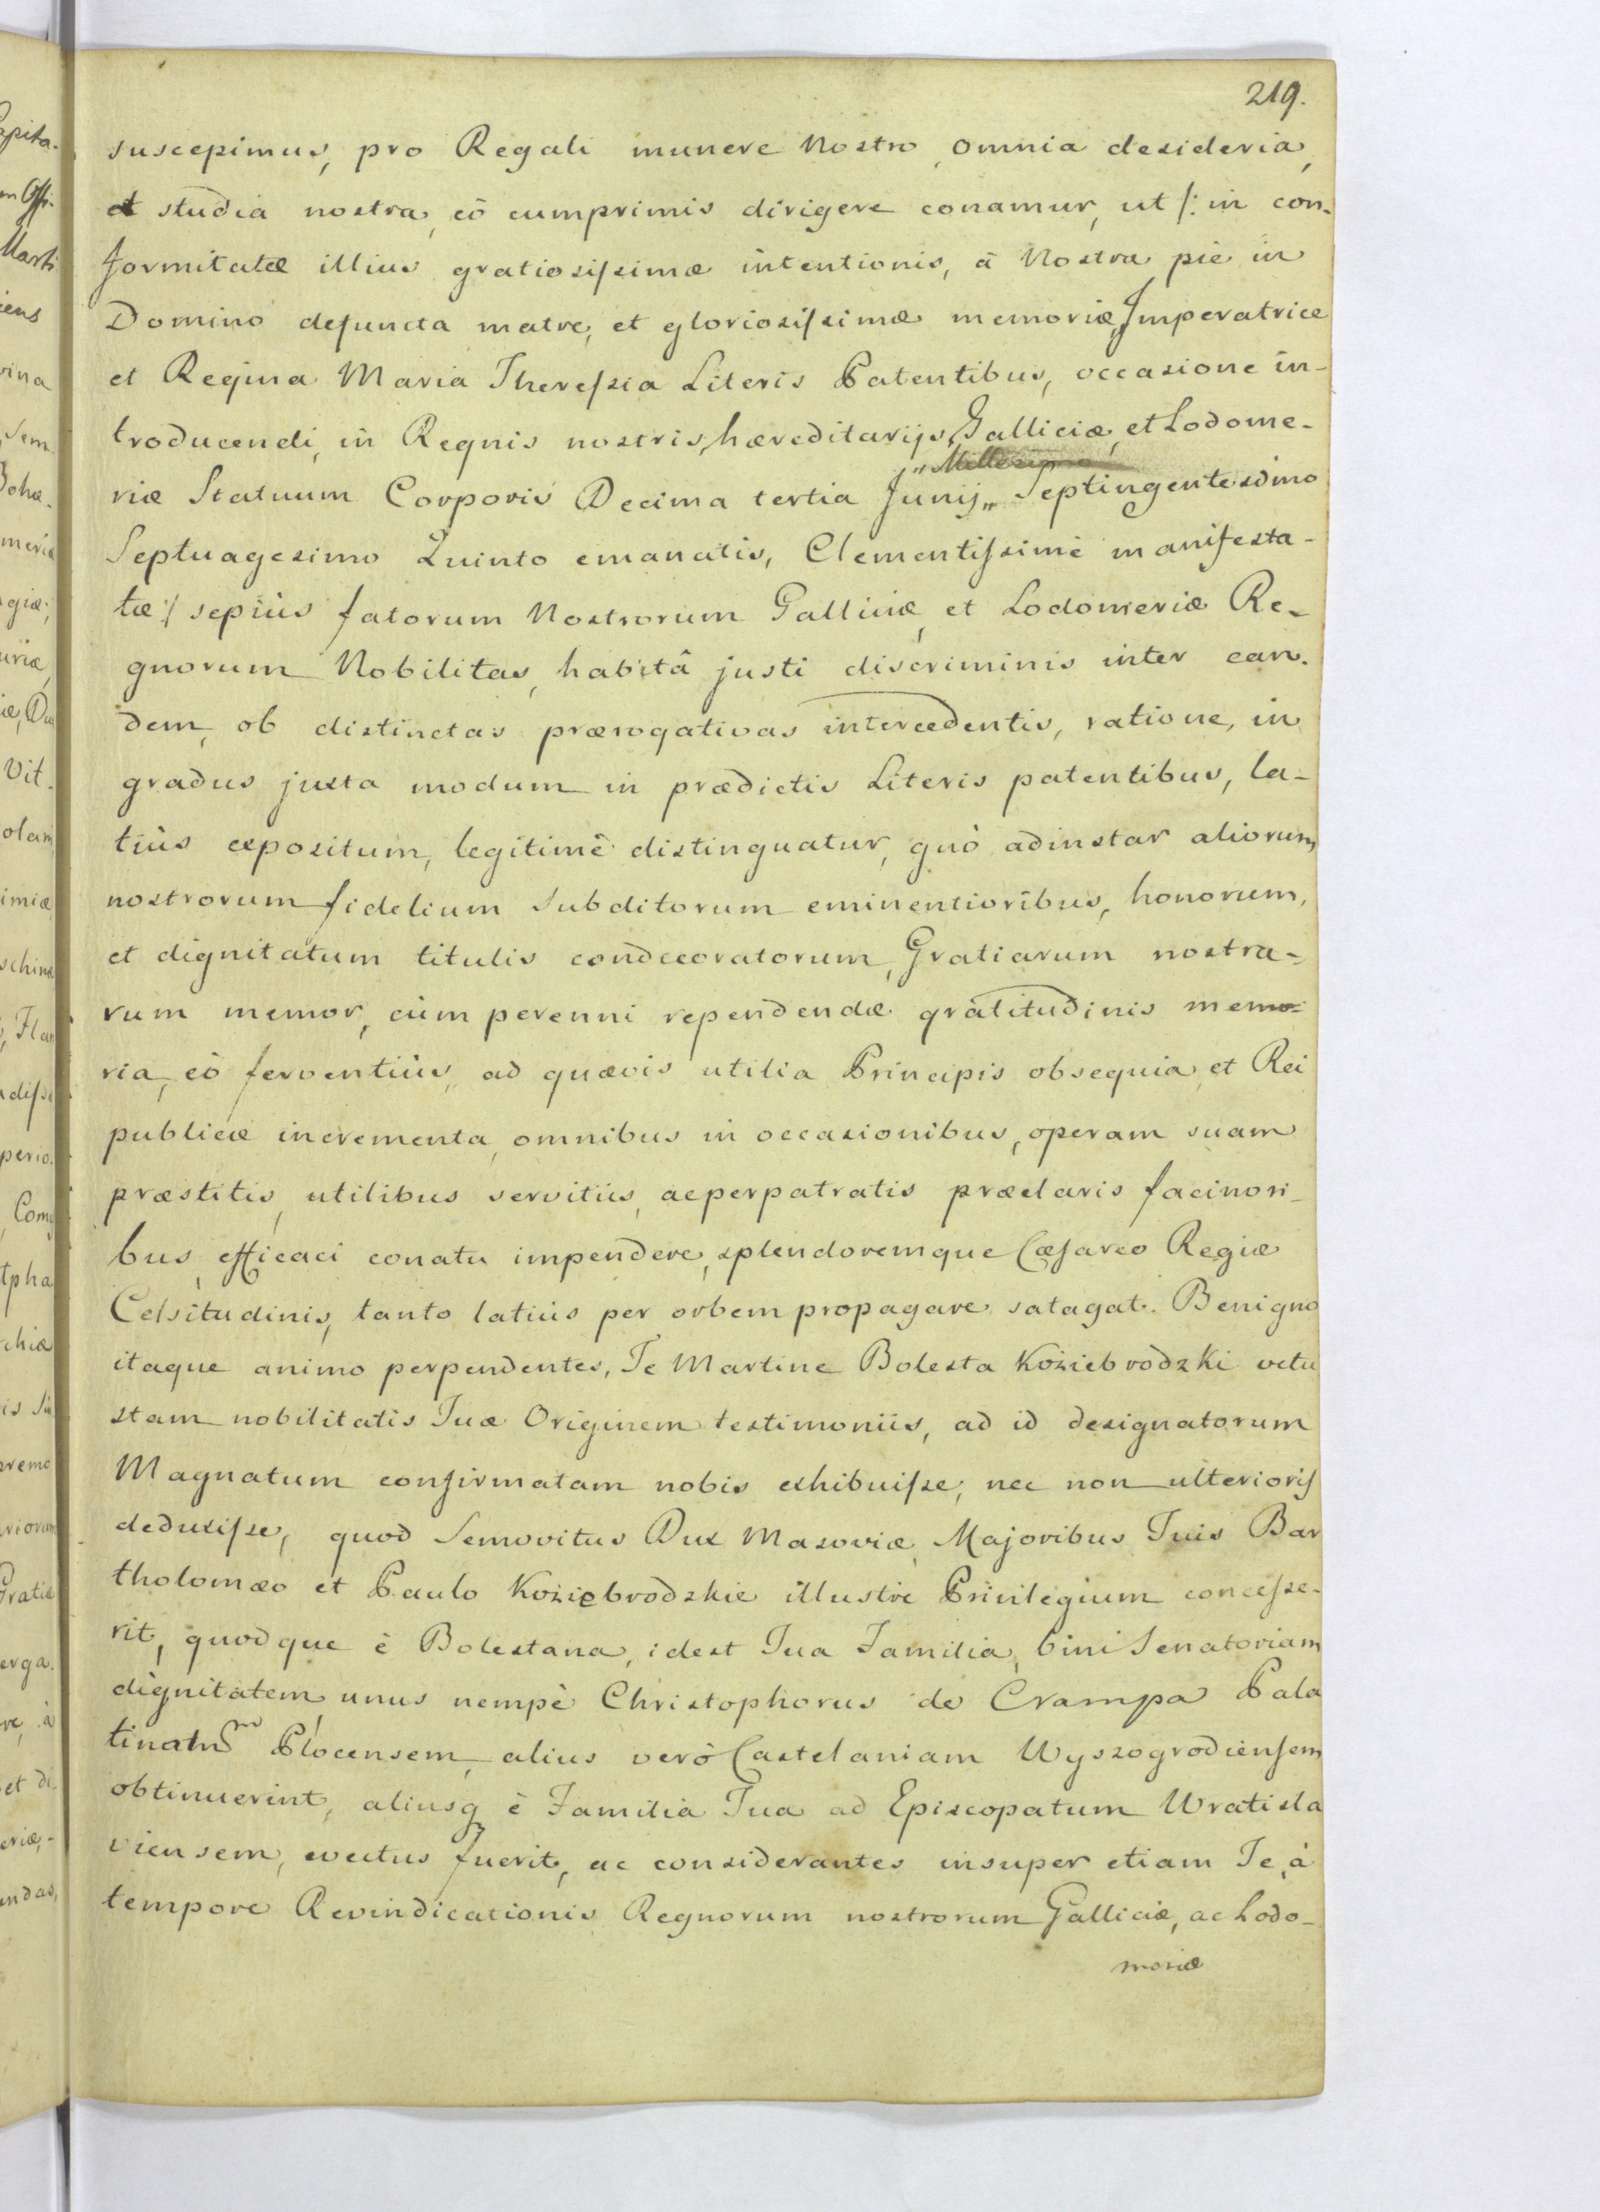 219.
suscepimus, pro Regali munere Nostro, omnia desideria,
et studia nostra, eò cumprimis dirigere conamur, ut /: in con-
formitatæ illius gratiosissimæ intentionis, à Nostra piè in
Domino defuncta matre, et gloriosissimæ memoriæ, Imperatrice
et Regina Maria Theressia Literis Patentibus, occasione in-
troducendi, in Regnis nostris, hæreditarijs, Galliciæ, et Lodome-
riæ Statuum Corporis Decima tertia Junij „ Septingentesimo
„ Millesimo
Septuagesimo Quinto emanatis, Clementissimè manifesta-
tæ :/ sepiùs fatorum Nostrorum Galliciæ, et Lodomeriæ Re-
gnorum Nobilitas, habitâ justi discriminis inter ean-
dem, ob distinctas prærogativas intercedentis, ratione, in
gradus juxta modum in prædictis Literis patentibus, la-
tiùs expositum, legitimè distinguatur, quò adinstar aliorum
nostrorum fidelium Subditorum eminentioribus, honorum,
et dignitatum titulis condecoratorum, Gratiarum nostra-
rum memor, cùm perenni rependendæ gratitudinis memo-
ria, eò ferventiùs, ad quævis utilia Principis obsequia, et Rei
publicæ incrementa, omnibus in occasionibus, operam suam
præstitis, utilibus servitiis, ac perpatratis præclaris facinori-
bus, efficaci conatu impendere, splendoremque Cæsareo Regiæ
Celsitudinis, tanto latiùs per orbem propagare satagat. Benigno
itaque animo perpendentes, Te Martine Bolesta Koziebrodzki vetu
stam nobilitatis Tuæ Originem testimoniis, ad id designatorum
Magnatum confirmatam nobis exhibuisse, nec non ulterioris
deduxisse, quod Semovitus Dux Masoviæ, Majoribus Tuis Bar
tholomæo et Paulo Koziebrodzkie illustre Privilegium concesse-
rit, quodque è Bolestana, idest Tua Familia, bini Senatoriam
dignitatem unus nempè Christophorus de Crampa Pala
tinatum Plocensem, alius verò Castelaniam Wyszogrodiensem
obtinuerint, aliusq è Familia Tua ad Episcopatum Wratisla
viensem, evectus fuerit, ac considerantes insuper etiam Te, à
tempore Revindicationis Regnorum nostrorum Galliciæ, ac Lodo-
moriæ